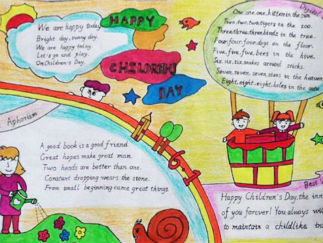 We are happy today
Bright day, sunny day.
We are happy today
Let's go and play.
On Children's Day.
HAPPY
CHILDREN'S
DAY
One, one, one, kitten in the sun
Two, two, two tigers in the zoo.
Three, three, three birds in the tree.
Four, four, four dogs on the floor.
Five, five, five, bees in the hive.
Six, six, six snakes around sticks.
Seven, seven, seven, stars in the heaven
Eight, eight, eight, holes in the
Aphorism
A good book is a good friend
Great hopes make great man.
Two heads are better than one.
Constant dropping wears the stone.
From small beginning came great things.
Best
Happy Children's Day, the inn
of you forever! You always wil
to maintain a childlike